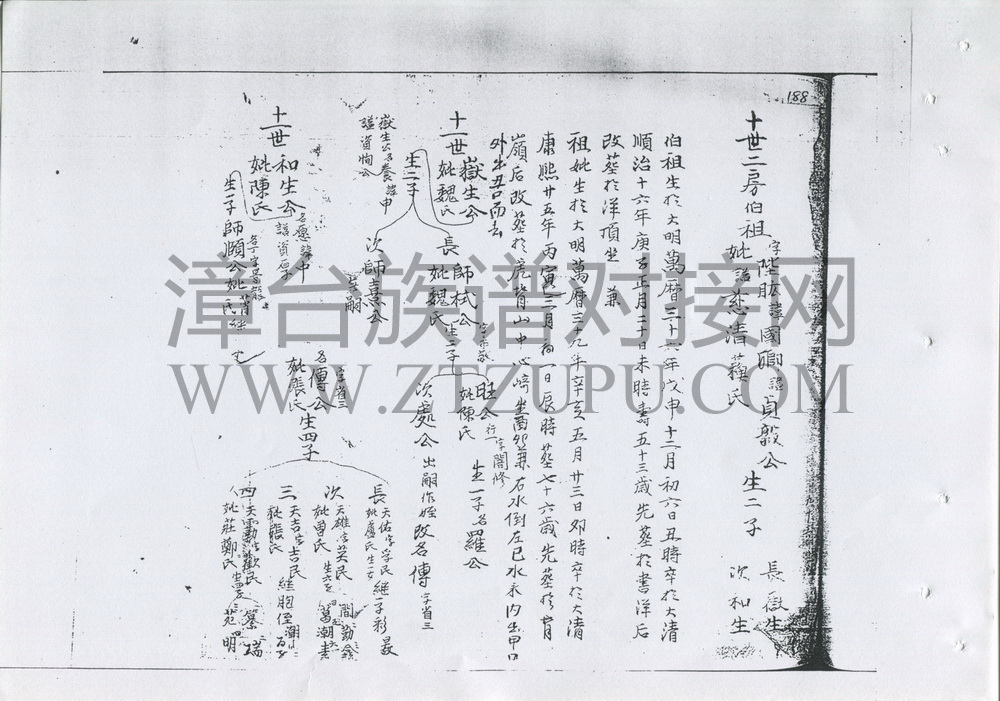 188
十世二房伯祖
字陞肱諱國卿諡貞毅公
妣諡慈清蘓氏
生二子
長嶽生
次和生
伯祖生於大明萬曆三十六年戊申十二月初六日丑時卒於大清
順治十六年庚子正月二十日未時壽五十三歲先塟於書洋后
改塟於洋頂坐 兼
祖妣生於大明萬曆三十九年辛亥五月廿三日卯時卒於大清
康熙廿五年丙寅三月初一日辰時塟七十六歲先塟於
嶺后改塟於虎背山中心崎坐酉卯兼 右水倒左巳水來內出甲口
外出丑口而去
十一世嶽生公
妣魏氏
生二子
嶽生公名養諱申
諡資恂公
長師栻公
妣魏氏
生二子
次師熹公
無嗣
旺公
妣陳氏
生一子名羅公
次處公
出嗣作姪改名傳
字省三
十一世和生公
妣陳氏
名愿諱中
生一子師頤公
字省三
名傳公
妣張氏
生四子
長天佑字孚民
妣盧氏
次天雄字英民
妣曾氏
三天吉字吉民
妣張氏
四天勳字歡民
妣莊鄭氏
漳台族谱对接网
WWW.ZTZUPU.COM